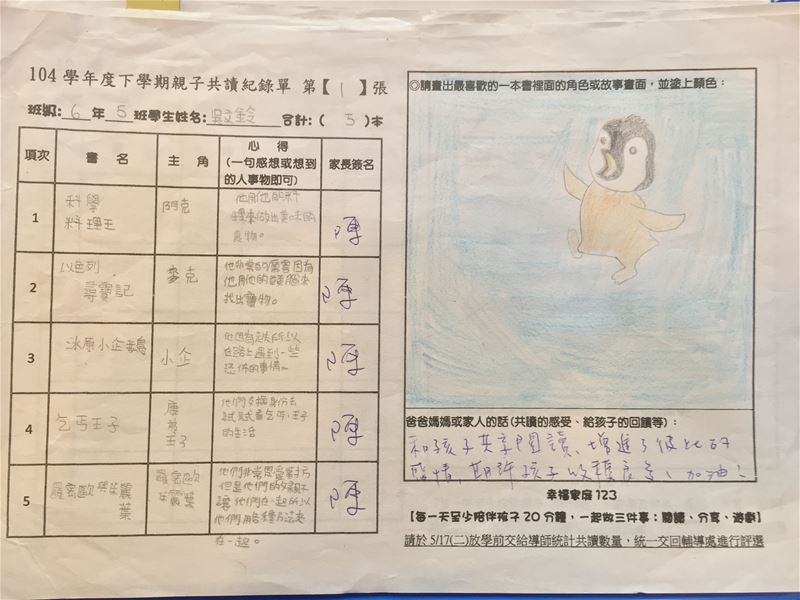 104 學年度下學期親子共讀紀錄單 第【 1 】張
班級: 6 年 5 班學生姓名: 吳文鈴 合計: ( 5 )本
項次 書 名 主 角 心 得 (一句感想或想到的人事物即可) 家長簽名
1 科學料理王 阿克 他用他的料理來做出美味的食物。 陳
2 以色列尋寶記 麥克 他非常的厲害因為他用他的頭腦來找出寶物。 陳
3 冰原小企鵝 小企 他因為迷路所以在路上遇到一些恐怖的事情。 陳
4 乞丐王子 王子 他們交換身份去試試看乞丐、王子的生活 陳
5 羅密歐與茱麗葉 羅密歐 茱麗葉 他們非常恩愛對方但是他們的父母不讓他們在一起所以他們用各種方法來在一起。 陳
◎請畫出最喜歡的一本書裡面的角色或故事畫面,並塗上顏色:
爸爸媽媽或家人的話(共讀的感受、給孩子的回饋等):
和孩子共享閱讀、增進了彼此的
感情,期許孩子收穫良多、加油!
幸福家庭 123
【每一天至少陪伴孩子 20 分鐘,一起做三件事:閱讀、分享、遊戲】
請於 5/17(二)放學前交給導師統計共讀數量,統一交回輔導處進行評選